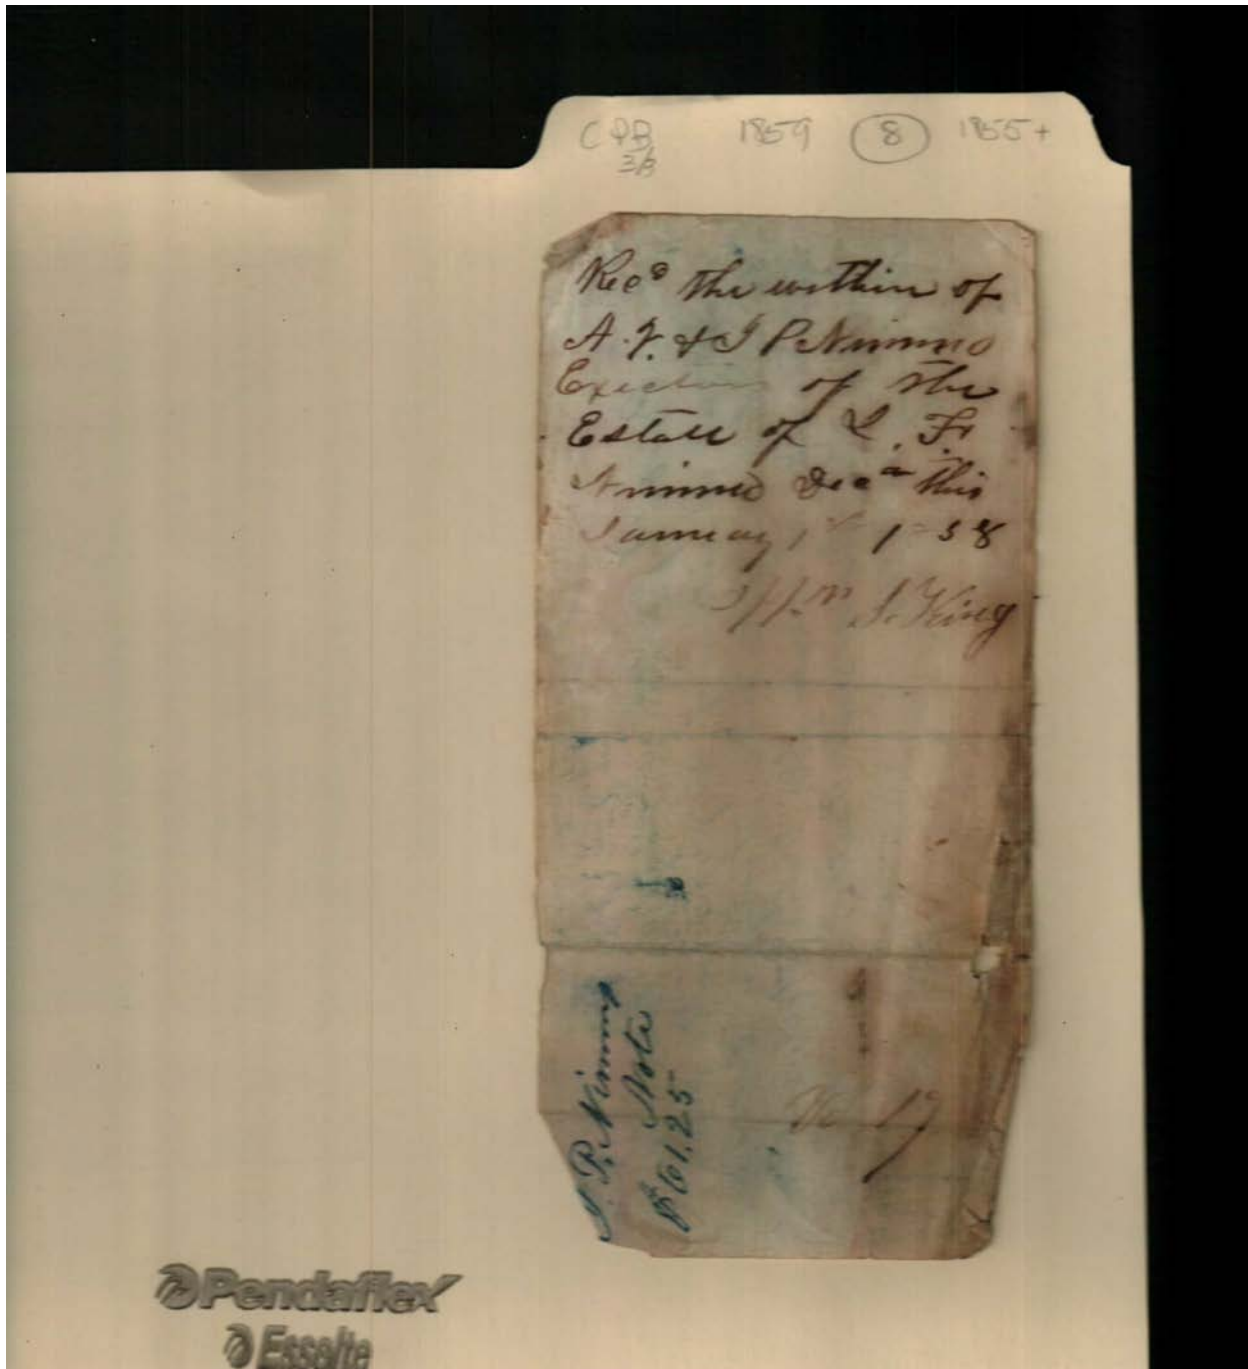 CPB 1859 8 1855+
3/8
Recd the within of
A. J. & J P Nimmo
Exectors of the
Estate of L. F.
Nimmo Decd this
January 1st 1858
Wm S. King
J. P. Nimmo
Note
$61.25
No 17
Pendaflex
Esselte